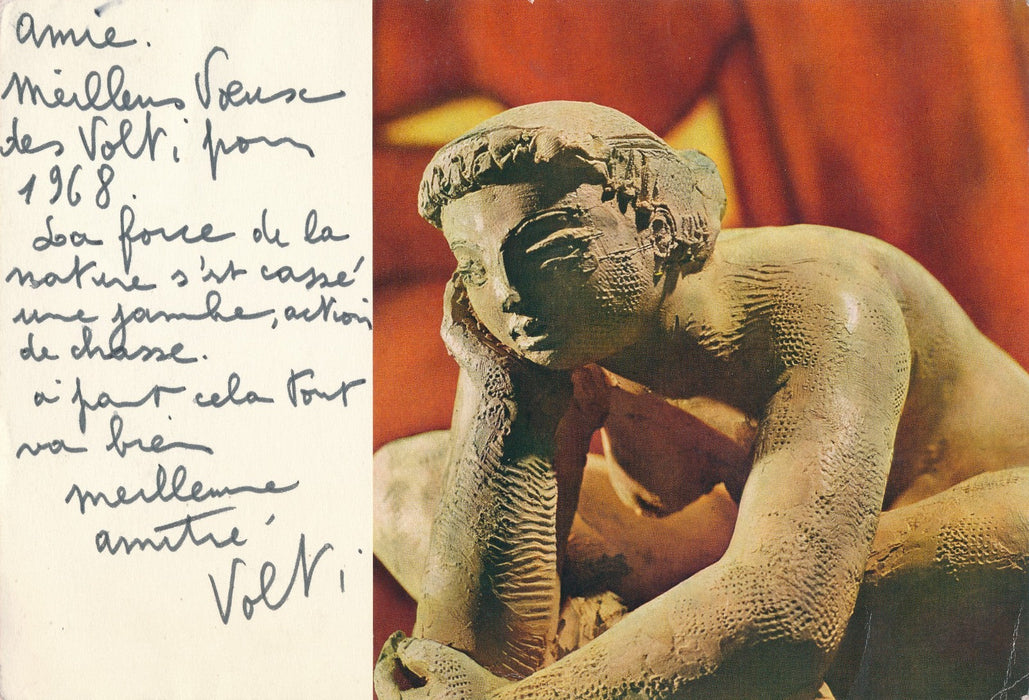 Amie.
Meilleurs Vœux
des Volti pour
1968.
La force de la
nature s'est cassé
une jambe, action
de chasse.
à part cela tout
va bien
meilleure
amitié
Volti